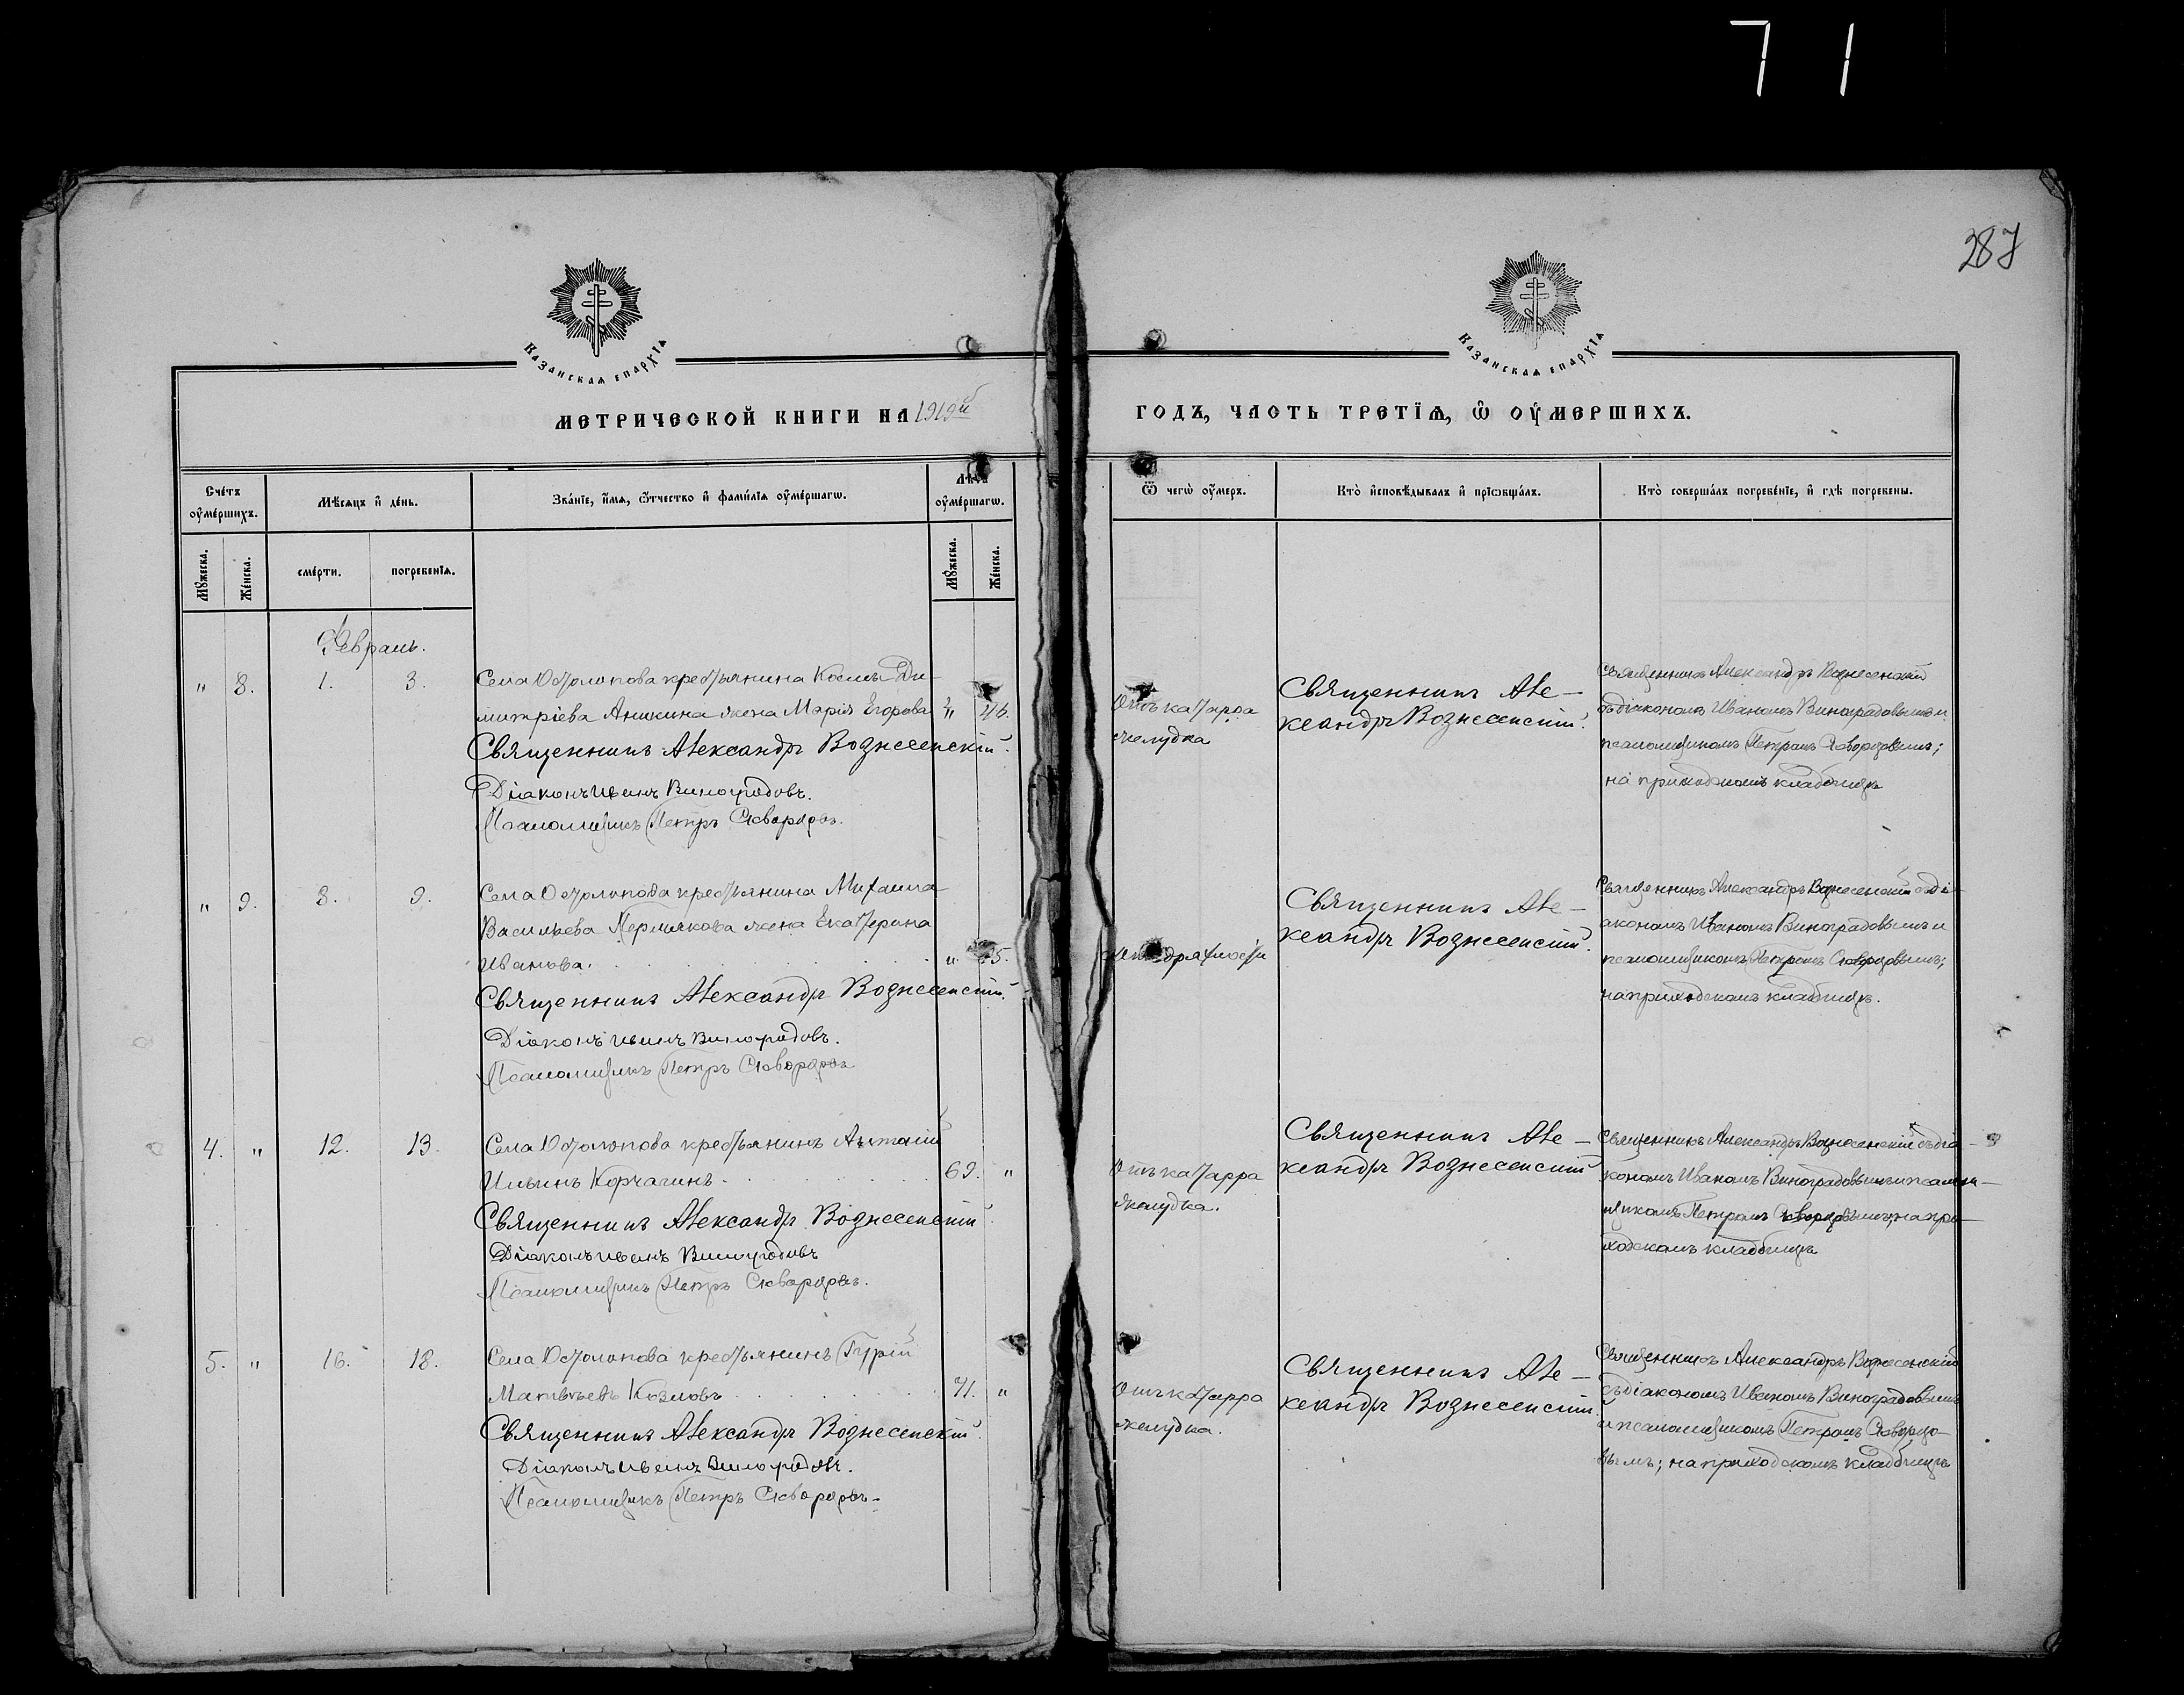 71
287
Казанская епархїѧ
Казанская епархїѧ
МЕТРИЧЕСКОЙ КНИГИ НА 1919й
ГОДЪ, ЧАСТЬ ТРЕТЇѦ, Ѡ ОУМЕРШИХЪ.
Счетъ оумершихъ.
Мѣсяцъ и день.
Званіе, имя, отчество и фамилія оумершагѡ.
Лѣта оумершагѡ.
Ѿ чегѡ оумеръ.
Кто исповѣдывалъ и прїѡбщалъ.
Кто совершалъ погребенїе, и гдѣ погребены.
Мужеска.
Женска.
смерти.
погребенїѧ.
Мужеска.
Женска.
Февраль.
" 8. 1. 3.
Села Остолопова крестьянина Космы Ди-
митріева Аникина жена Марія Егорова "
Священникъ Александръ Вознесенскій.
Діаконъ Иванъ Виноградовъ.
Псаломщикъ Петръ Скворцовъ.
Отъ катарра
желудка
Священникъ Але-
ксандръ Вознесенскій.
Священникъ Александръ Вознесенскій
съ діакономъ Иваномъ Виноградовымъ и
псаломщикомъ Петромъ Скворцовымъ;
на приходскомъ кладбищѣ
" 9. 8. 9.
Села Остолопова крестьянина Михаила
Васильева Пермякова жена Екатерина
Иванова. "
Священникъ Александръ Вознесенскій.
Діаконъ Иванъ Виноградовъ.
Псаломщикъ Петръ Скворцовъ
Священникъ Але-
ксандръ Вознесенскій.
Священникъ Александръ Вознесенскій съ ді-
акономъ Иваномъ Виноградовымъ и
псаломщикомъ Петромъ Скворцовымъ;
на приходскомъ кладбищѣ.
4. " 12. 13.
Села Остолопова крестьянинъ
Ильинъ Корчагинъ. 69. "
Священникъ Александръ Вознесенскій
Діаконъ Иванъ Виноградовъ
Псаломщикъ Петръ Скворцовъ.
Отъ катарра
желудка.
Священникъ Але-
ксандръ Вознесенскій
Священникъ Александръ Вознесенскій съ діа-
кономъ Иваномъ Виноградовымъ и псалом-
щикомъ Петромъ Скворцовымъ; на при-
ходскомъ кладбищѣ
5. " 16. 18.
Села Остолопова крестьянинъ Гурій
Матвѣевъ Козловъ 71. "
Священникъ Александръ Вознесенскій.
Діаконъ Иванъ Виноградовъ.
Псаломщикъ Петръ Скворцовъ.
Отъ катарра
желудка.
Священникъ Але-
ксандръ Вознесенскій
Священникъ Александръ Вознесенскій
съ діакономъ Иваномъ Виноградовымъ
и псаломщикомъ Петромъ Скворцо-
вымъ; на приходскомъ кладбищѣ